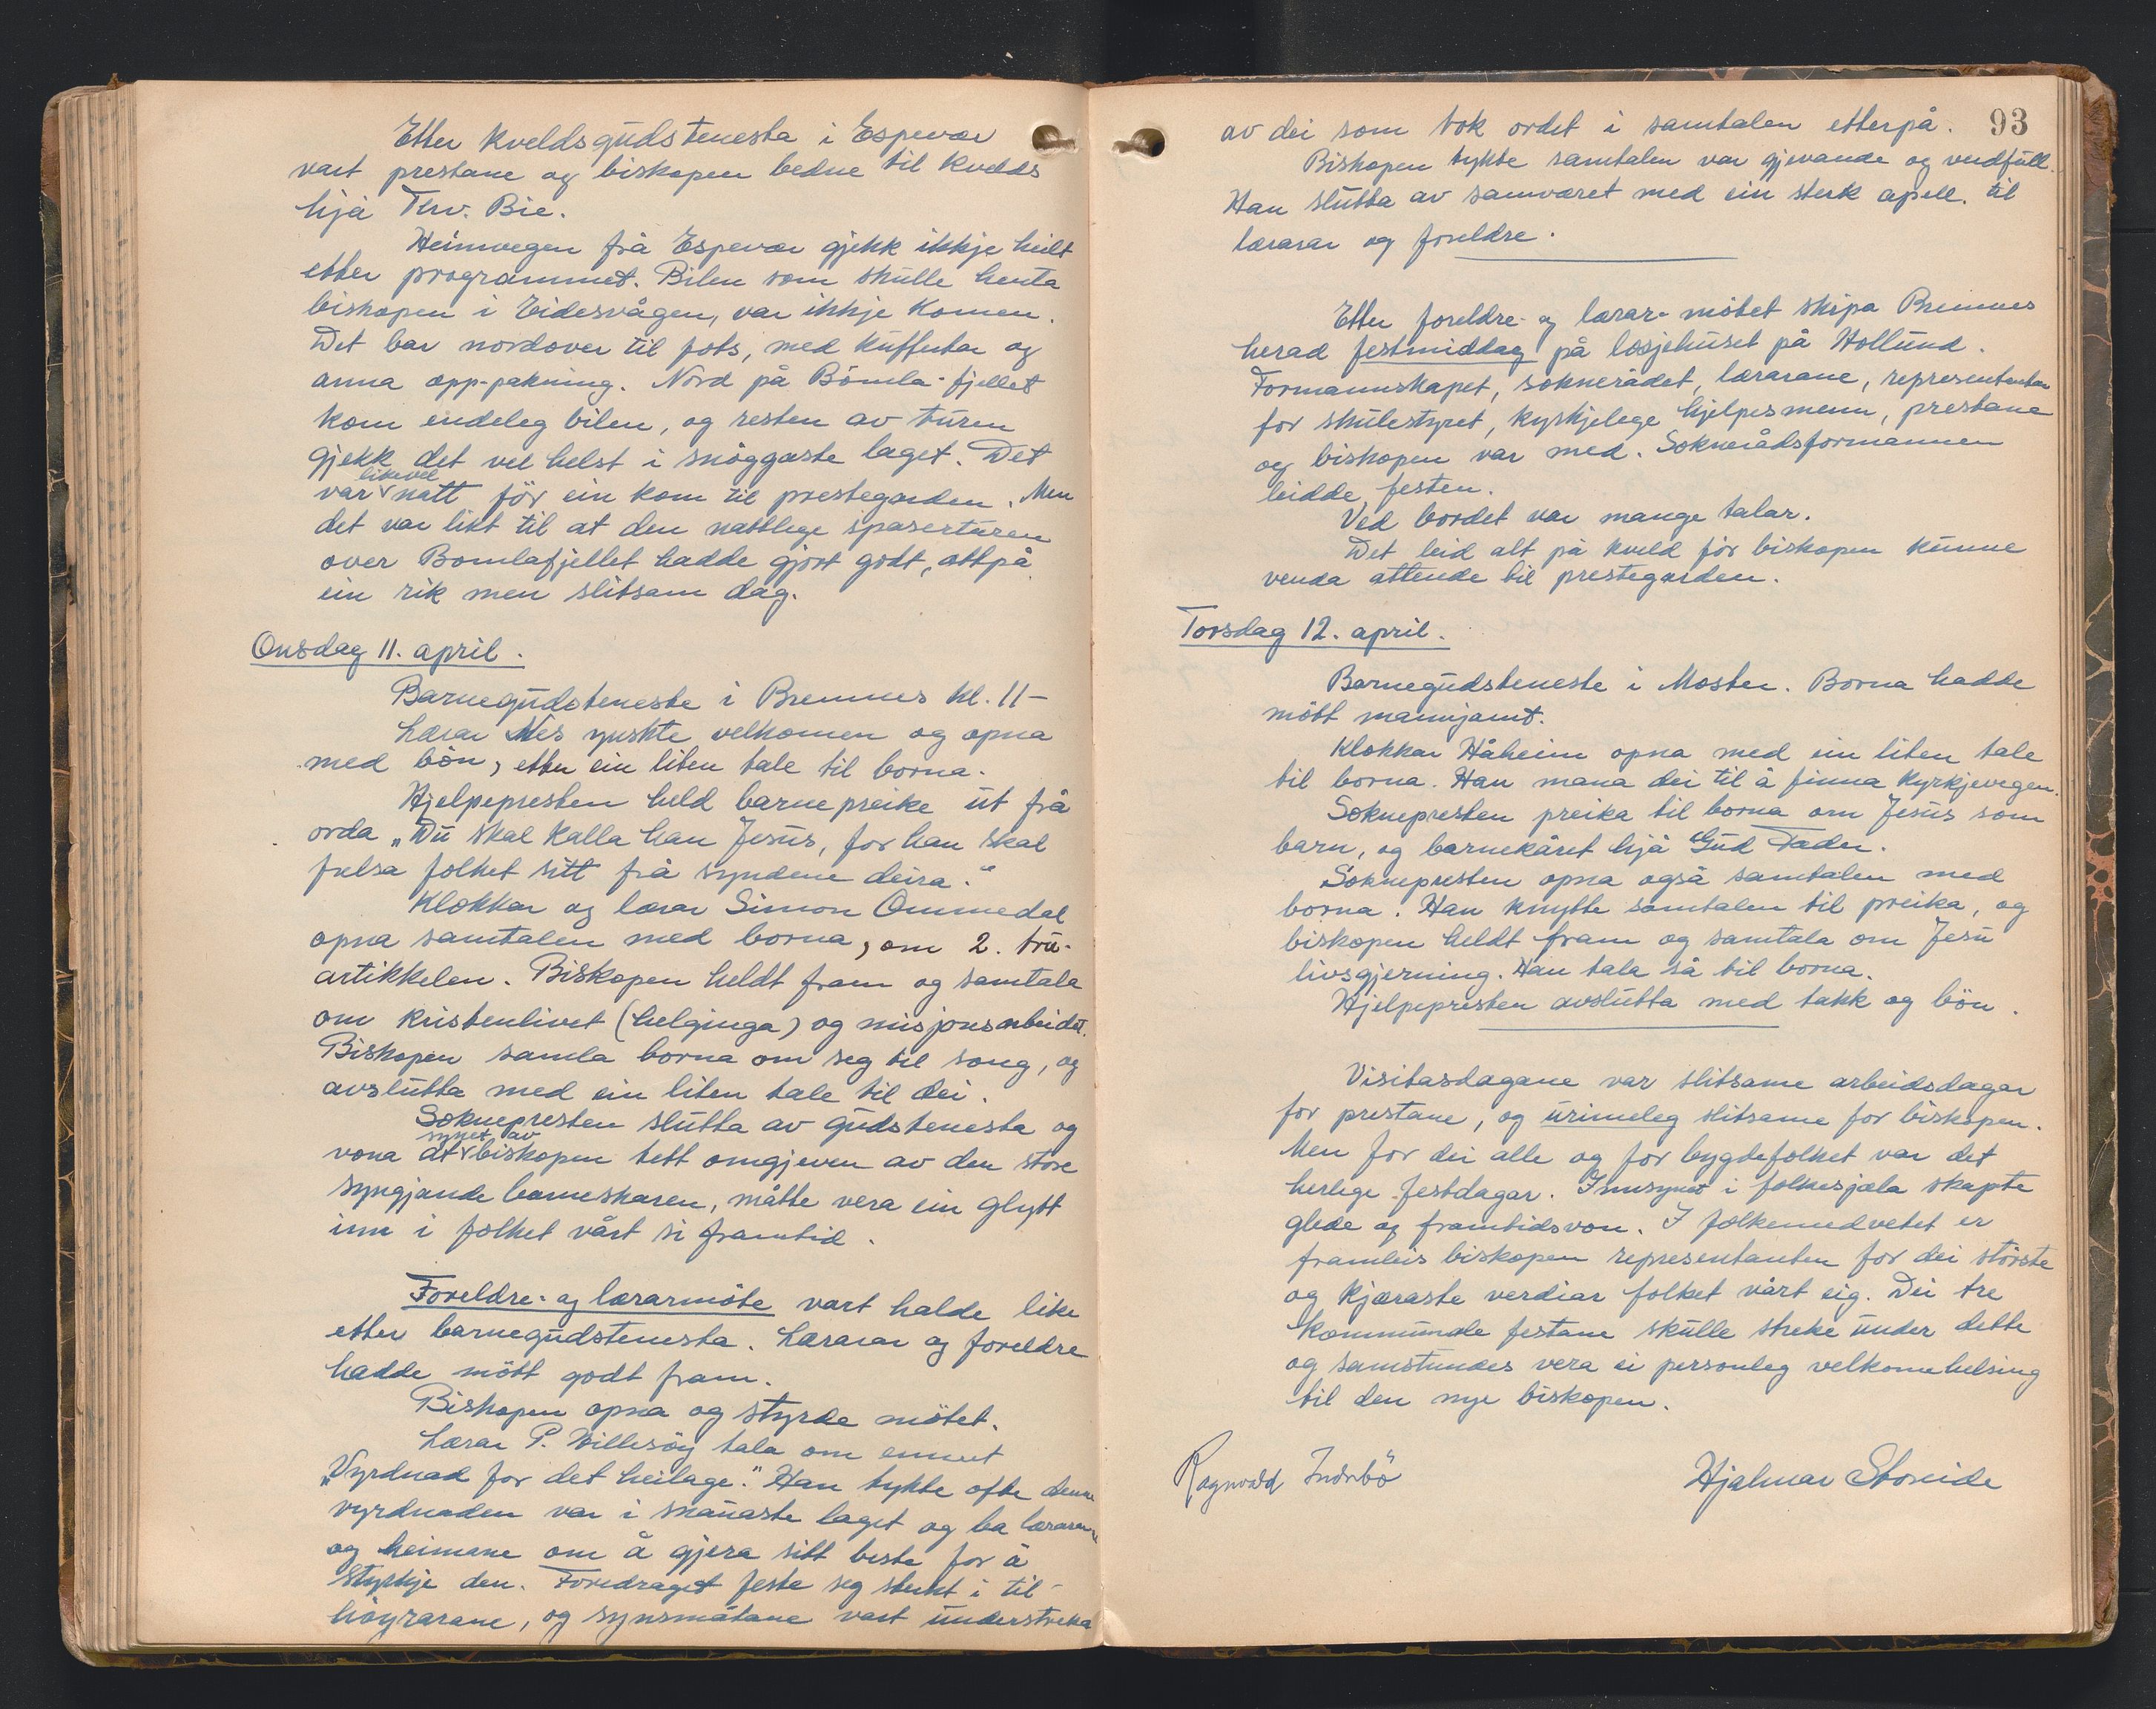 Etter kveldsgudstenesta i Espevær
vart prestane og biskopen bedne til kvelds
hjå Thv. Bie.
Heimvegen frå Espevær gjekk ikkje heilt
etter programmet. Bilen som skulle henta
biskopen i Eidesvågen, var ikkje komen.
Det bar nordover til fots, med kuffertar og
anna opp-pakning. Nord på Bömla-fjellet
kom endeleg bilen, og resten av turen
gjekk det vel helst i snöggaste laget. Det
var likevel natt för ein kom til prestegarden. Men
det var likt til at den nattlege spaserturen
over Bömlafjellet hadde gjort godt, attpå
ein rik men slitsam dag.
Onsdag 11. april.
Barnegudsteneste i Bremnes kl. 11-
Lærar Nes ynskte velkomen og opna
med bön, etter ein liten tale til borna.
Hjelpepresten held barnepreike ut frå
orda „Du skal kalla han Jesus, for han skal
frelsa folket sitt frå syndene deira."
Klokkar og lærar Simon Ommedal
opna samtalen med borna, om 2. tru-
artikkelen. Biskopen heldt fram og samtala
om kristenlivet (helginga) og misjonsarbeidet.
Biskopen samla borna om seg til song, og
avslutta med ein liten tale til dei.
Soknepresten slutta av gudstenesta og
vona at synet av biskopen tett omgjeven av den store
syngjande barneskaren, måtte vera ein glytt
inn i folket vårt si framtid.
Foreldre- og lærarmöte vart halde like
etter barnegudstenesta. Lærarar og foreldre
hadde mött godt fram.
Biskopen opna og styrde mötet.
Lærar P. Willesöy tala om emnet
„Vyrdnad for det heilage." Han tykte ofte denne
vyrdnaden var i snauaste laget og ba lærarane
og heimane om å gjera sitt beste for å
styrkje den. Foredraget feste seg sterkt i til-
höyrarane, og synsmåtane vart understreka
93
av dei som tok ordet i samtalen etterpå.
Biskopen tykte samtalen var gjevande og verdfull.
Han slutta av samværet med ein sterk apell til
lærarar og foreldre.
Etter foreldre- og lærar-mötet skipa Bremnes
herad festmiddag på losjehuset på Hollund.
Formannskapet, soknerådet, lærarane, representantar
for skulestyret, kyrkjelege hjelpesmenn, prestane
og biskopen var med. Soknerådsformannen
leidde festen.
Ved bordet var mange talar.
Det leid alt på kveld för biskopen kunne
venda attende til prestegarden.
Torsdag 12. april.
Barnegudsteneste i Moster. Borna hadde
mött mannjamt.
Klokkar Håheim opna med ein liten tale
til borna. Han mana dei til å finna kyrkjevegen.
Soknepresten preika til borna om Jesus som
barn, og barnekåret hjå Gud Fader.
Soknepresten opna også samtalen med
borna. Han knytte samtalen til preika, og
biskopen heldt fram og samtala om Jesu
livsgjerning. Han tala så til borna.
Hjelpepresten avslutta med takk og bön.
Visitasdagane var slitsame arbeidsdagar
for prestane, og urimeleg slitsame for biskopen.
Men for dei alle og for bygdefolket var det
herlege festdagar. Innsynet i folkesjæla skapte
glede og framtidsvon. I folkemedvetet er
framleis biskopen representanten for dei störste
og kjæraste verdiar folket vårt eig. Dei tre
kommunale festane skulle streke under dette
og samstundes vera ei personleg velkomehelsing
til den nye biskopen.
Ragnvald Indrebö
Hjalmar Storeide